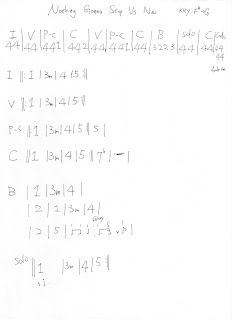 Nothing Gonna Stop Us Now KEY: F#→G
I | V | P-C | C | V | P-C | C | B | solo | C |
44 | 44 | 441 | 442 | 44 | 441 | 44 | 3223 | 44 | 44 | 44
44
I ||: 1 | 3m | 4 | 5 :||
V ||: 1 | 3m | 4 | 5 :||
P-C ||: 1 | 3m | 4 | 5 :|| 5 |
C ||: 1 | 3m | 4 | 5 :|| 7b | - |
B | 1 | 3m | 4 |
| 2 | 1 | 3m | 4 |
| 2 | 5 |
solo ||: 1 | 3m | 4 | 5 :||